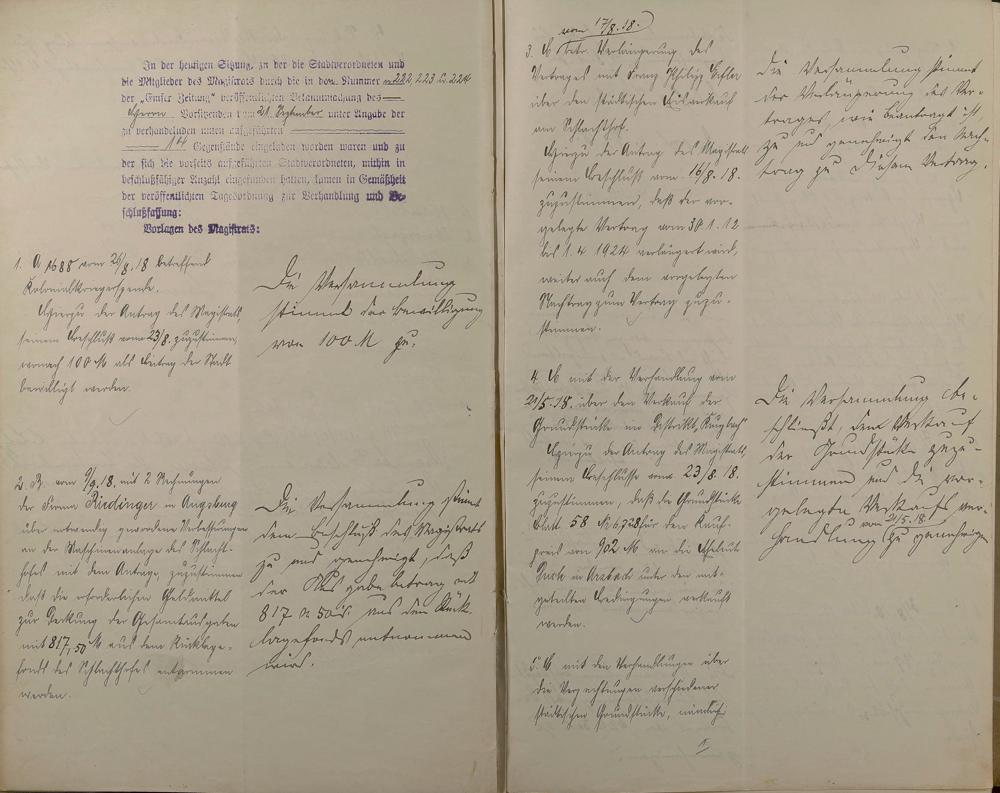 In der heutigen Sitzung, zu der die Stadtverordneten und
die Mitglieder des Magistrats durch die in den Nummer n 222 223 u. 224
der „Emser Zeitung“ veröffentlichten Bekanntmachung des
Herrn Vorsitzenden vom 21. September unter Angabe der
zu verhandelnden unten aufgeführten
14 Gegenstände eingeladen worden waren und zu
der sich die vorseits aufgeführten Stadtverordneten, mithin in
beschlußfähiger Anzahl eingefunden hatten, kamen in Gemäßheit
der veröffentlichten Tagesordnung zur Verhandlung und Be-
schlußfassung:
Vorlagen des Magistrats:
1. A 1688 vom 26/8.18 betreffend
Kolonialkriegerspende.
Hierzu der Antrag des Magistrats,
seinem Beschluß vom 23/8. zuzustimmen,
wonach 100 M als Beitrag der Stadt
bewilligt werden.
Die Versammlung
stimmt der Bewilligung
von 100 M zu.
2. B. vom 9/9.18. mit 2 Rechnungen
der Firma Riedinger in Augsburg
über notwendig gewordene Verbesserungen
an der Maschinenanlage des Schlacht-
hofes mit dem Antrage, zuzustimmen
daß die erforderlichen Geldmittel
zur Deckung der Gesamtausgaben
mit 817,50 M aus dem Rücklage-
fonds des Schlachthofes entnommen
werden.
Die Versammlung stimmt
dem Beschluß des Magistrats
zu und genehmigt, daß
der Ausgabebetrag mit
817 M 50 aus dem Rück
lagefonds entnommen
wird.
vom 17/8.18.
3. B betr. Verlängerung des
Vertrages mit Franz Philipp
über den städtischen Eisverkauf
am Schlachthof.
Hierzu der Antrag des Magistrats
seinem Beschluß vom 16/8.18.
zuzustimmen, daß der vor-
gelegte Vertrag vom 30.1.12
bis 1.4 1924 verlängert wird,
weiter auch dem vorgelegten
Nachtrag zum Vertrag zuzu-
stimmen.
Die Versammlung stimmt
der Verlängerung des Ver-
trages, wie beantragt ist,
zu und genehmigt den Nach-
trag zu diesem Vertrag.
4. B mit der Verhandlung vom
21/5.18. über den Verkauf der
Grundstücke im Distrikt
Hierzu der Antrag des Magistrats,
seinem Beschlusse vom 23/8.18.
zuzustimmen, daß die Grundstücke
Blatt 58 für den Kauf-
preis von 902 M an die Eheleute
in Arzbach unter den mit-
geteilten Bedingungen verkauft
werden.
Die Versammlung be-
schließt, dem Verkauf
der Grundstücke zuzu-
stimmen und die vor-
gelegte Verkaufsver-
handlung vom 21/5.18. zu genehmigen
5. B mit den Verhandlungen über
die Verpachtungen verschiedener
städtischer Grundstücke, nämlich